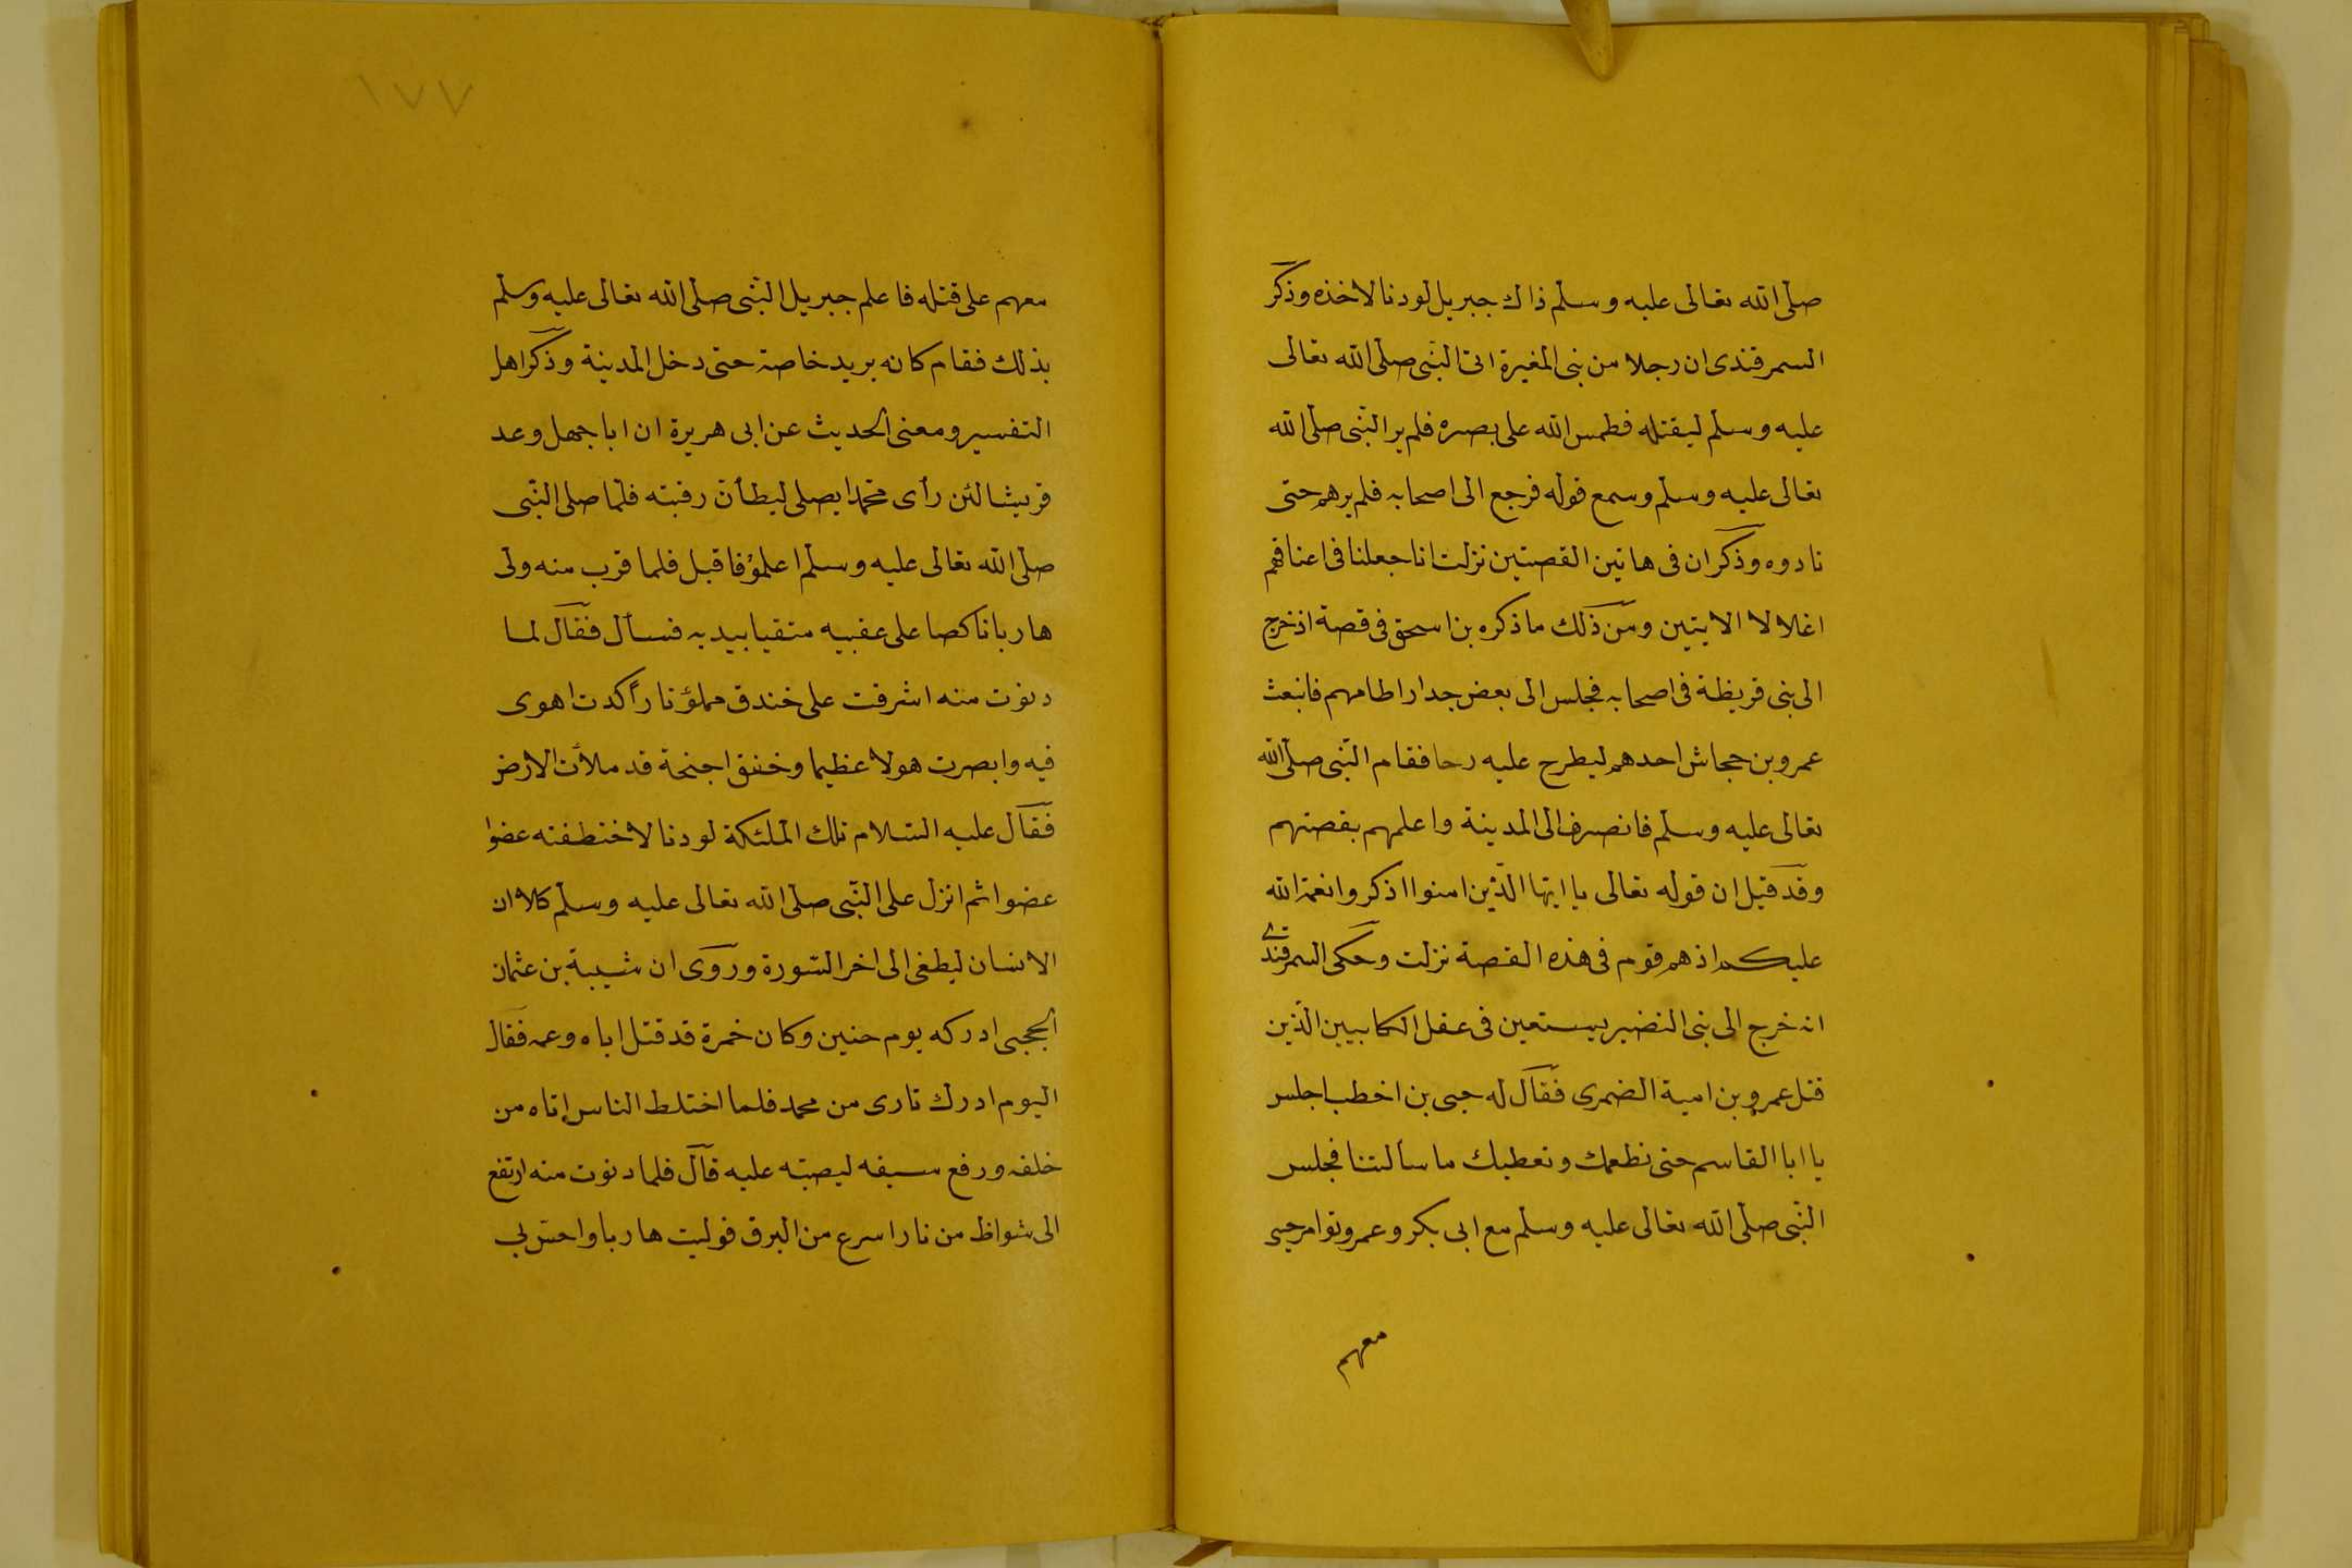 صلى الله تعالى عليه وسلم ذاك جبريل لو دنا لاخذه وذكر
السمرقندى ان رجلا من بنى المغيرة اتى النبى صلى الله تعالى
عليه وسلم ليقتله فطمس الله على بصره فلم ير النبى صلى الله
تعالى عليه وسلم وسمع قوله فرجع الى اصحابه فلم يرهم حتى
نادوه وذكر ان فى هاتين القصتين نزلت انا جعلنا فى اعناقهم
اغلالا الايتين ومن ذلك ما ذكره بن اسحق فى قصة اذ خرج
الى بنى قريظة فى اصحابه فجلس الى بعض جدار اطامهم فانبعث
عمرو بن حجاش احدهم ليطرح عليه رحا فقام النبى صلى الله
تعالى عليه وسلم فانصرف الى المدينة واعلمهم بقصتهم
وقد قيل ان قوله تعالى يا ايها الذين امنوا اذكروا نعمة الله
عليكم اذ هم قوم فى هذه القصة نزلت وحكى السمرقندى
انه خرج الى بنى النضير يستعين فى عقل الكلابيين الذين
قتل عمرو بن امية الضمرى فقال له حيى بن اخطب اجلس
يا ابا القاسم حتى نطعمك ونعطيك ما سالتنا فجلس
النبى صلى الله تعالى عليه وسلم مع ابى بكر وعمر وتوامر حيى
معهم
١٧٧
معهم على قتله فاعلم جبريل النبى صلى الله تعالى عليه وسلم
بذلك فقام كانه يريد خاصة حتى دخل المدينة وذكر اهل
التفسير ومعنى الحديث عن ابى هريرة ان ابا جهل وعد
قريشا لئن رأى محمدا يصلى ليطأن رقبته فلما صلى النبى
صلى الله تعالى عليه وسلم اعلموه فاقبل فلما قرب منه ولى
هاربا ناكصا على عقبيه متقيا بيديه فسأل فقال لما
دنوت منه اشرفت على خندق مملؤ نارا كدت اهوى
فيه وابصرت هولا عظيما وخفق اجنحة قد ملأت الارض
فقال عليه السلام تلك الملئكة لو دنا لاختطفته عضوا
عضوا ثم انزل على النبى صلى الله تعالى عليه وسلم كلا ان
الانسان ليطغى الى اخر السورة وروى ان شيبة بن عثمان
الحجبى ادركه يوم حنين وكان حمزة قد قتل اباه وعمه فقال
اليوم ادرك ثارى من محمد فلما اختلط الناس اتاه من
خلفه ورفع سيفه ليصبه عليه قال فلما دنوت منه ارتفع
الى شواظ من نار اسرع من البرق فوليت هاربا واحس بى